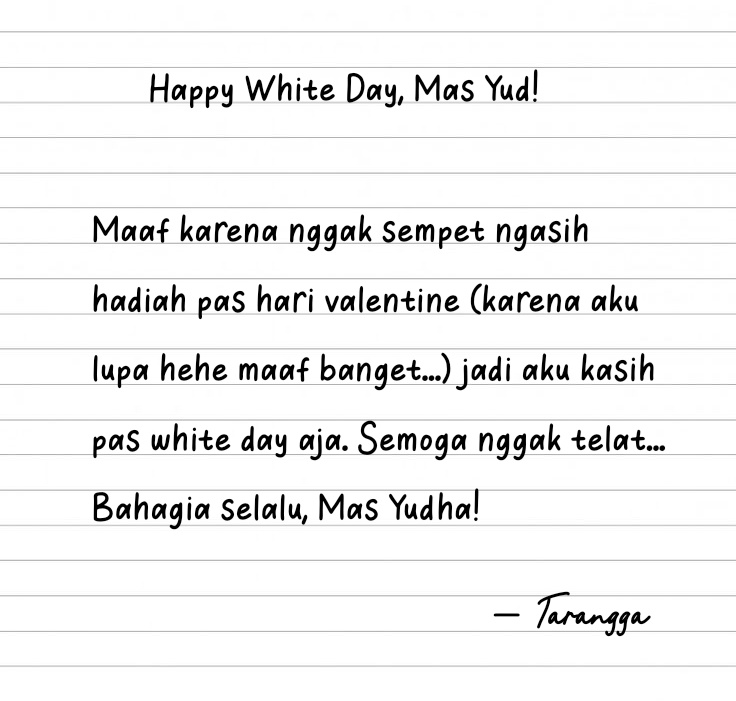 Happy White Day, Mas Yud!
Maaf karena nggak sempet ngasih
hadiah pas hari valentine (karena aku
lupa hehe maaf banget...) jadi aku kasih
pas white day aja. Semoga nggak telat...
Bahagia selalu, Mas Yudha!
— Tarangga